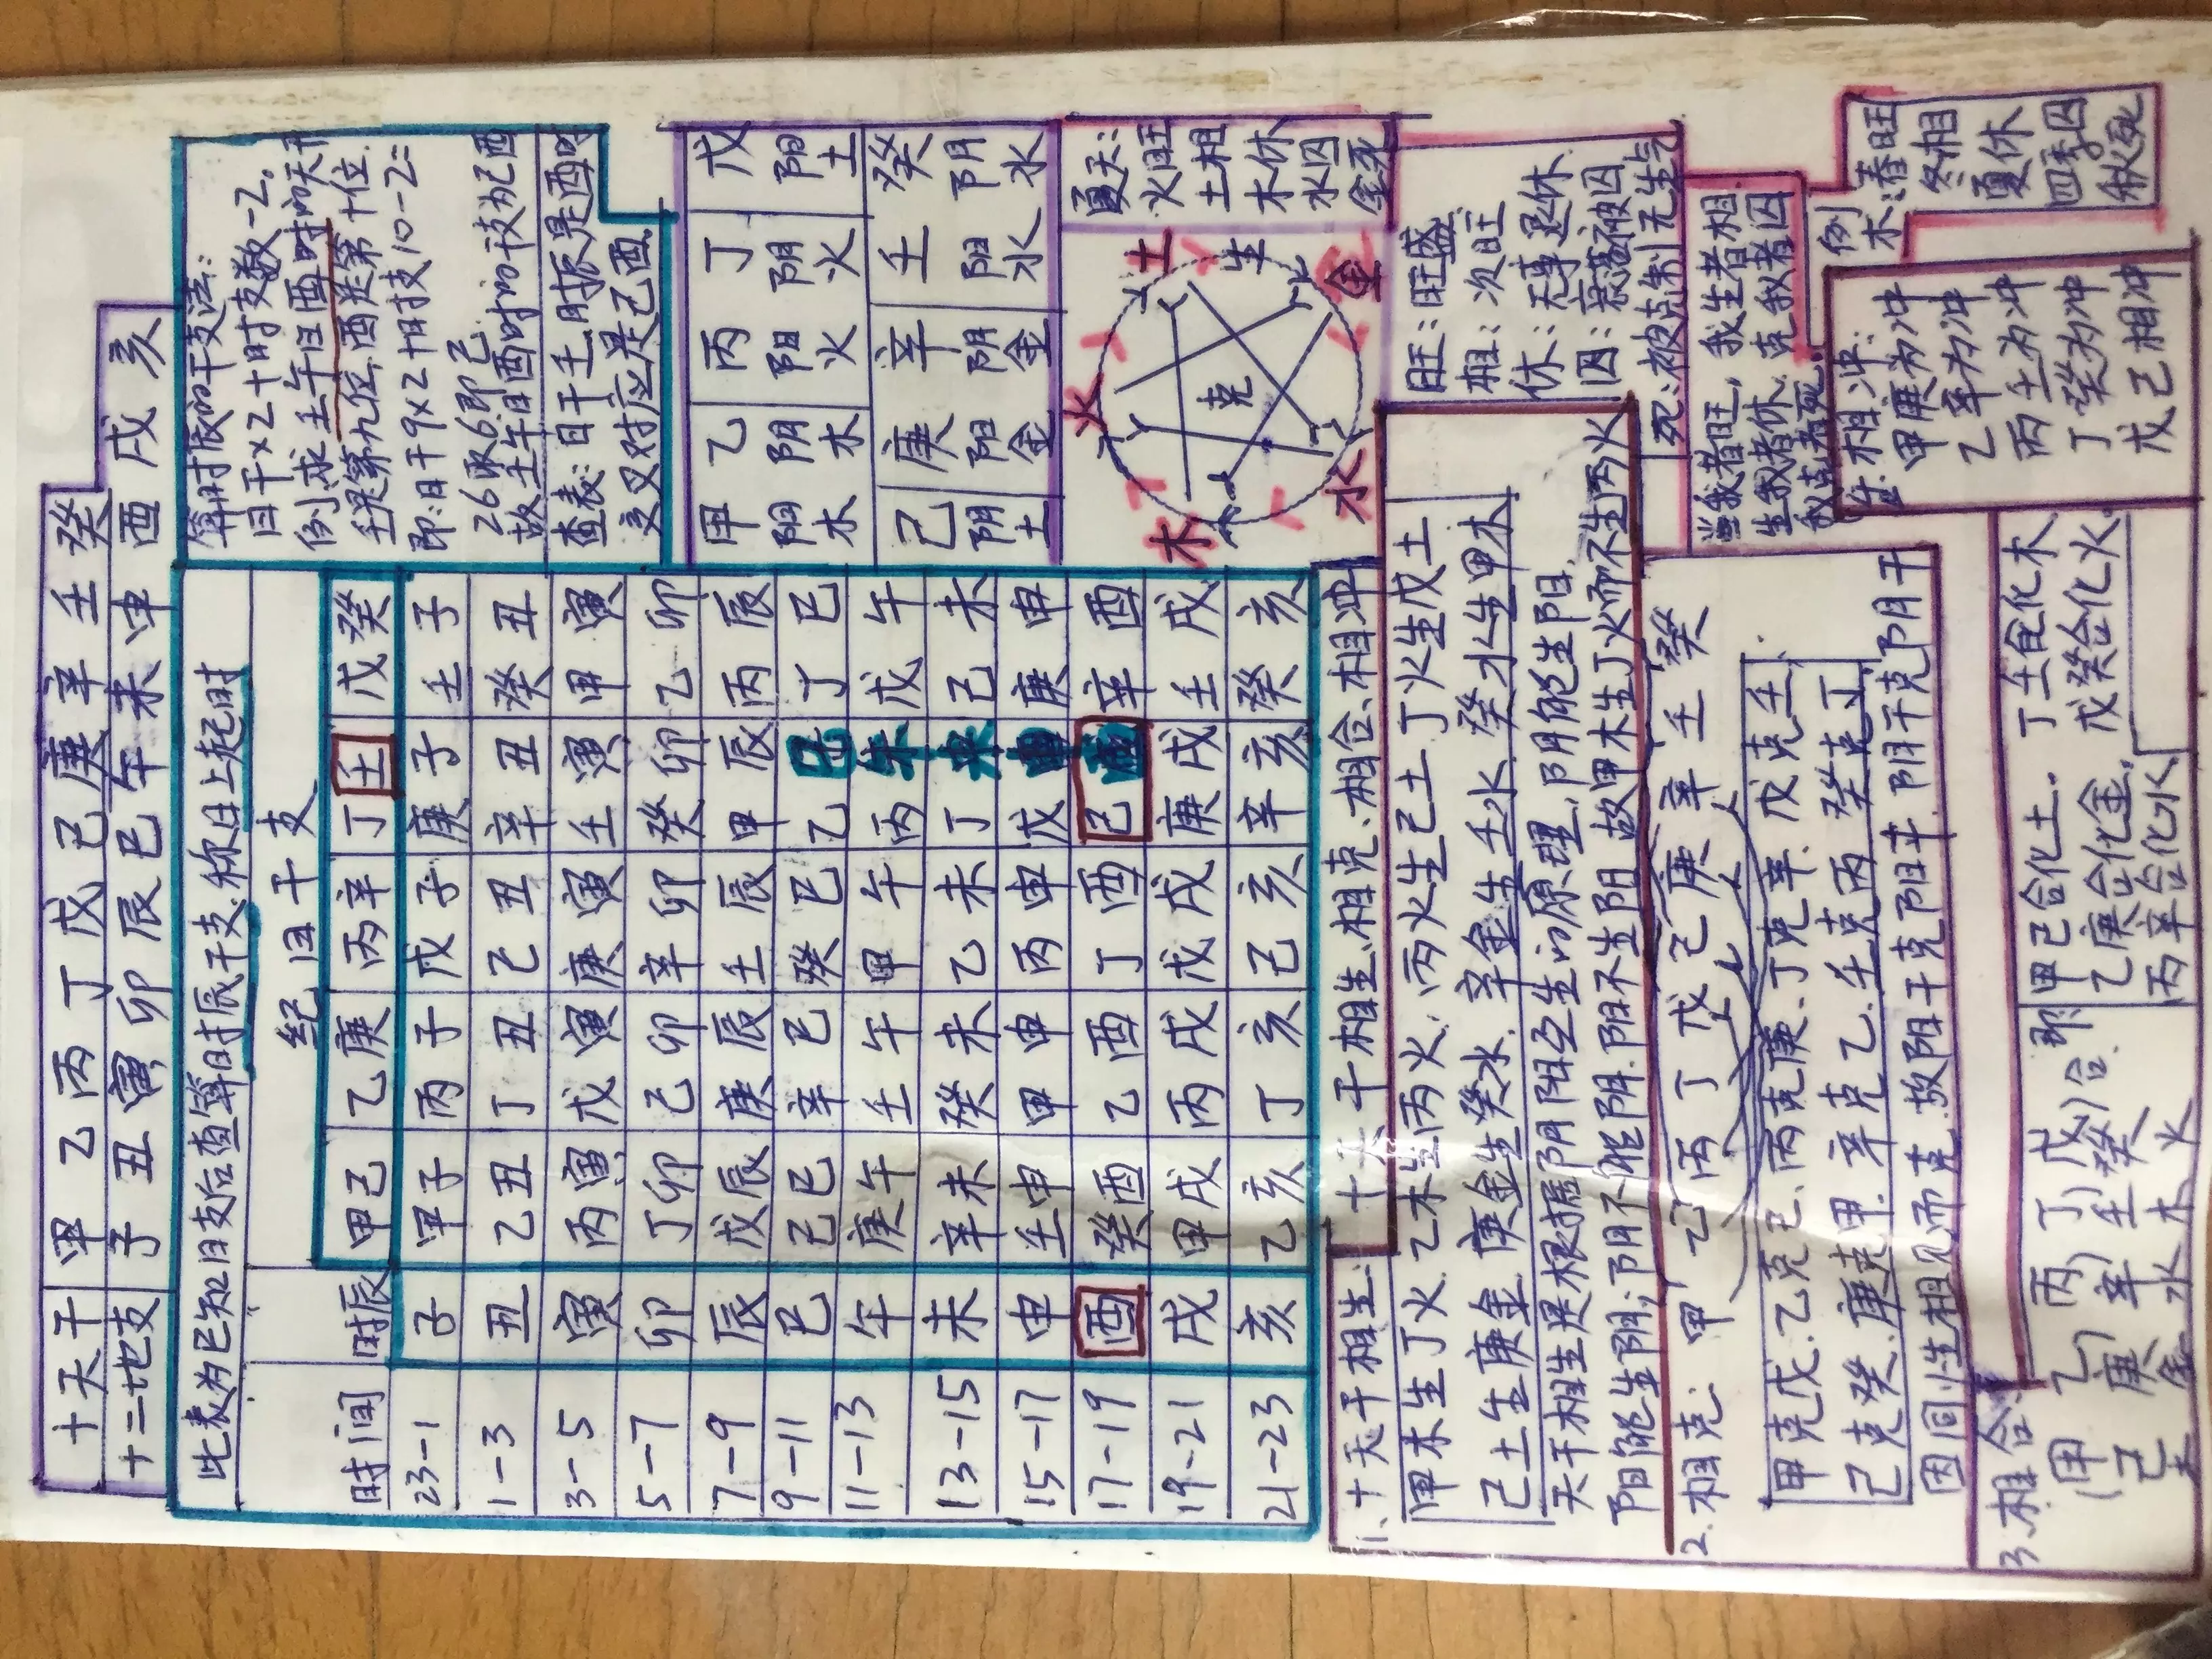 十天干 甲 乙 丙 丁 戊 己 庚 辛 壬 癸
十二地支 子 丑 寅 卯 辰 巳 午 未 申 酉 戌 亥
此表为已知日支后查算时辰干支.称日上起时
纪日干支
时间 时辰 甲己 乙庚 丙辛 丁壬 戊癸
23-1 子 甲子 丙子 戊子 庚子 壬子
1-3 丑 乙丑 丁丑 己丑 辛丑 癸丑
3-5 寅 丙寅 戊寅 庚寅 壬寅 甲寅
5-7 卯 丁卯 己卯 辛卯 癸卯 乙卯
7-9 辰 戊辰 庚辰 壬辰 甲辰 丙辰
9-11 巳 己巳 辛巳 癸巳 乙巳 丁巳
11-13 午 庚午 壬午 甲午 丙午 戊午
13-15 未 辛未 癸未 乙未 丁未 己未
15-17 申 壬申 甲申 丙申 戊申 庚申
17-19 酉 癸酉 乙酉 丁酉 己酉 辛酉
19-21 戌 甲戌 丙戌 戊戌 庚戌 壬戌
21-23 亥 乙亥 丁亥 己亥 辛亥 癸亥
算时辰的干支法:
日干×2+时支数-2。
例求壬午日酉时的天干
壬是第九位.酉是第十位.
即:日干9×2+时支10-2=
26取6.即己.
故壬午日酉时的干支为己酉
查表:日干壬.时辰是酉时
交叉对应是己酉.
甲 乙 丙 丁 戊
阳木 阴木 阳火 阴火 阳土
己 庚 辛 壬 癸
阴土 阳金 阴金 阳水 阴水
木 火 土 金 水
生
克
夏天:
火旺
土相
木休
水囚
金死
旺:旺盛
相:次旺
休:无事退休
囚:衰落被囚
死:被克制无生气
当我者旺,我生者相
生我者休.克我者囚
我克者死.
例
木:春旺
冬相
夏休
四季囚
秋死
十天干相生、相克、相合、相冲
1、十天干相生:
甲木生丁火.乙木生丙火.丙火生己土.丁火生戊土
己土生庚金.庚金生癸水.辛金生壬水.癸水生甲木
天干相生是根据阴阳互生的原理、阴能生阳.
阳能生阴;阴不能阴.阳不生阳.故甲木生丁火而不生丙火
2.相克: 甲 乙 丙 丁 戊 己 庚 辛 壬 癸
甲克戊.乙克己.丙克庚.丁克辛.戊克壬
己克癸.庚克甲.辛克乙.壬克丙.癸克丁
因同性相见而克.故阳干克阳干.阴干克阴干
3.相合:
(甲己)土 (乙庚)金 (丙辛)水 (丁壬)木 (戊癸)火 合 即
甲己合化土. 丁壬合化木
乙庚合化金. 戊癸合化火.
丙辛合化水
4.相冲:
甲庚为冲
乙辛为冲
丙壬为冲
丁癸为冲
戊己相冲